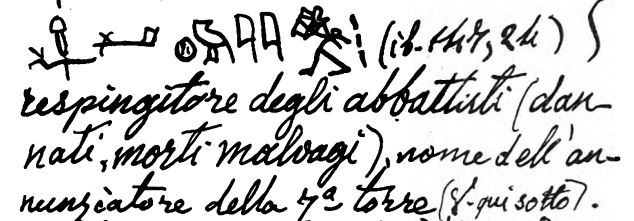 (ib. 147, 24)
respingitore degli abbattuti (dan-
nati, morti malvagi), nome dell'an-
nunziatore della 7ª torre (V. qui sotto).